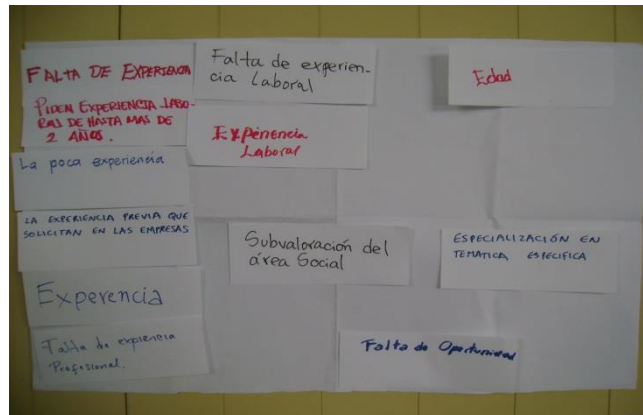 FALTA DE EXPERIENCIA
PIDEN EXPERIENCIA LABO-
RAS DE HASTA MAS DE
2 AÑOS.
La poca experiencia
LA EXPERIENCIA PREVIA QUE
SOLICITAN EN LAS EMPRESAS
Experencia
Falta de expiencia
Profesional.
Falta de experien-
cia Laboral
Experiencia
Laboral
Subvaloración del
área Social
Edad
ESPECIALIZACIÓN EN
TEMATICA ESPECIFICA
Falta de Oportunidad